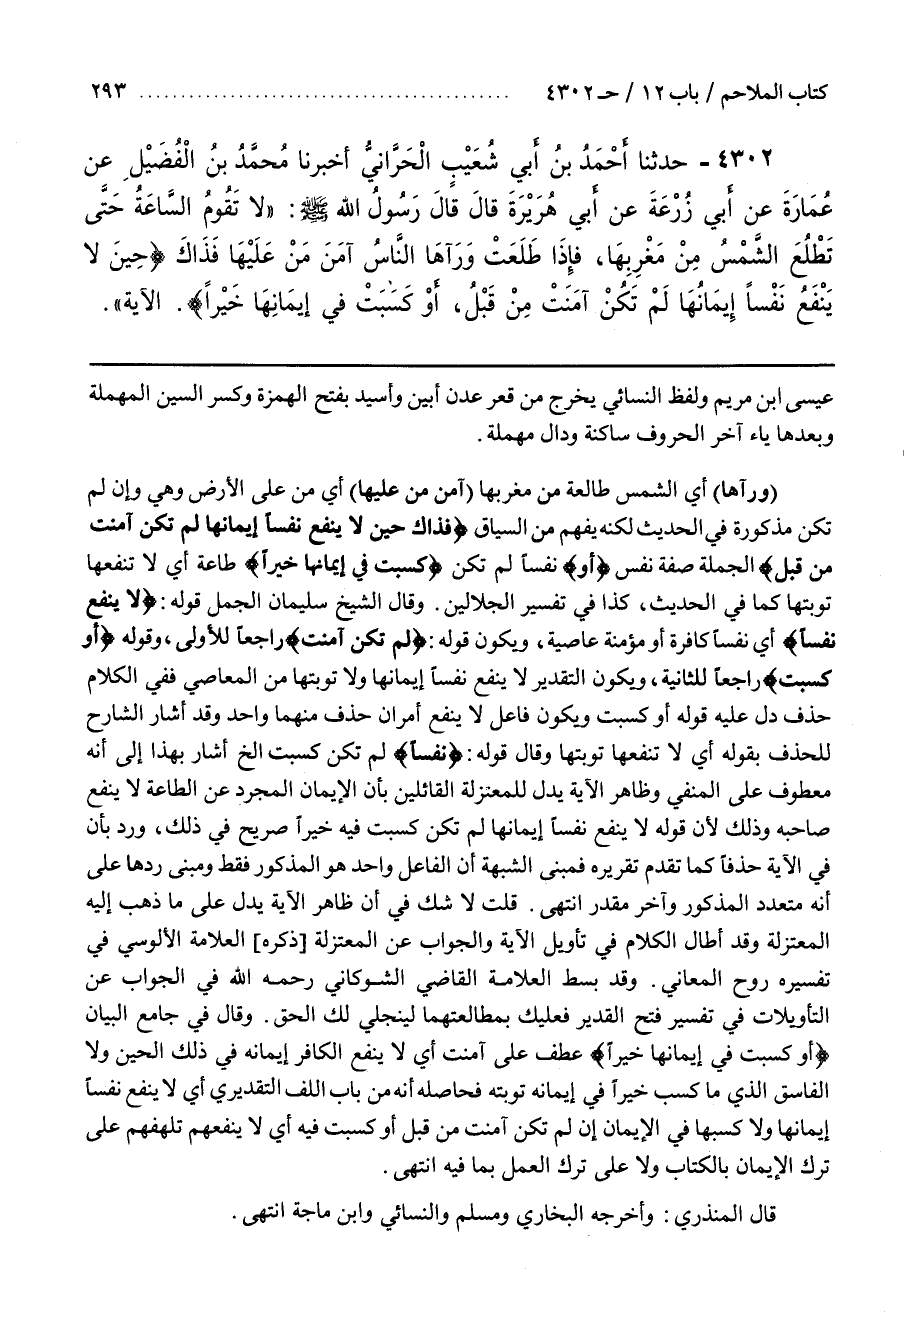 كتاب الملاحم / باب ١٢ / حـ ٤٣٠٢ ............................................. ٢٩٣
٤٣٠٢ - حدثنا أَحْمَدُ بنُ أَبي شُعَيْبٍ الْحَرَّانيُّ أخبرنا مُحمَّدُ بنُ الْفُضَيْلِ عن
عُمَارَةَ عن أَبي زُرْعَةَ عن أَبي هُرَيْرَةَ قالَ قالَ رَسُولُ الله ﷺ: «لا تَقُومُ السَّاعَةُ حَتَّى
تَطْلُعَ الشَّمْسُ مِنْ مَغْرِبِهَا، فإِذَا طَلَعَتْ وَرَآهَا النَّاسُ آمَنَ مَنْ عَلَيْهَا فَذَاكَ ﴿حِينَ لا
يَنْفَعُ نَفْساً إِيمَانُهَا لَمْ تَكُنْ آمَنَتْ مِنْ قَبْلُ، أَوْ كَسَبَتْ في إيمَانِهَا خَيْراً﴾. الآية».
عيسى ابن مريم ولفظ النسائي يخرج من قعر عدن أبين وأسيد بفتح الهمزة وكسر السين المهملة
وبعدها ياء آخر الحروف ساكنة ودال مهملة.
(ورآها) أي الشمس طالعة من مغربها (آمن من عليها) أي من على الأرض وهي وإن لم
تكن مذكورة في الحديث لكنه يفهم من السياق ﴿فذاك حين لا ينفع نفساً إيمانها لم تكن آمنت
من قبل﴾ الجملة صفة نفس ﴿أو﴾ نفساً لم تكن ﴿كسبت في إيمانها خيراً﴾ طاعة أي لا تنفعها
توبتها كما في الحديث، كذا في تفسير الجلالين. وقال الشيخ سليمان الجمل قوله: ﴿لا ينفع
نفساً﴾ أي نفساً كافرة أو مؤمنة عاصية، ويكون قوله: ﴿لم تكن آمنت﴾ راجعاً للأولى، وقوله ﴿أو
كسبت﴾ راجعاً للثانية، ويكون التقدير لا ينفع نفساً إيمانها ولا توبتها من المعاصي ففي الكلام
حذف دل عليه قوله أو كسبت ويكون فاعل لا ينفع أمران حذف منهما واحد وقد أشار الشارح
للحذف بقوله أي لا تنفعها توبتها وقال قوله: ﴿نفساً﴾ لم تكن كسبت الخ أشار بهذا إلى أنه
معطوف على المنفي وظاهر الآية يدل للمعتزلة القائلين بأن الإيمان المجرد عن الطاعة لا ينفع
صاحبه وذلك لأن قوله لا ينفع نفساً إيمانها لم تكن كسبت فيه خيراً صريح في ذلك، ورد بأن
في الآية حذفاً كما تقدم تقريره فمبنى الشبهة أن الفاعل واحد هو المذكور فقط ومبنى ردها على
أنه متعدد المذكور وآخر مقدر انتهى. قلت لا شك في أن ظاهر الآية يدل على ما ذهب إليه
المعتزلة وقد أطال الكلام في تأويل الآية والجواب عن المعتزلة [ذكره] العلامة الألوسي في
تفسيره روح المعاني. وقد بسط العلامة القاضي الشوكاني رحمه الله في الجواب عن
التأويلات في تفسير فتح القدير فعليك بمطالعتهما لينجلي لك الحق. وقال في جامع البيان
﴿أو كسبت في إيمانها خيراً﴾ عطف على آمنت أي لا ينفع الكافر إيمانه في ذلك الحين ولا
الفاسق الذي ما كسب خيراً في إيمانه توبته فحاصله أنه من باب اللف التقديري أي لا ينفع نفساً
إيمانها ولا كسبها في الإيمان إن لم تكن آمنت من قبل أو كسبت فيه أي لا ينفعهم تلهفهم على
ترك الإيمان بالكتاب ولا على ترك العمل بما فيه انتهى.
قال المنذري: وأخرجه البخاري ومسلم والنسائي وابن ماجة انتهى.